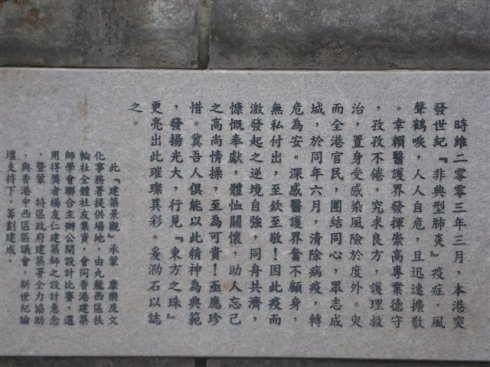 時維二零零三年三月，本港突
發世紀『非典型肺炎』疫症，風
聲鶴唳，人人自危，且迅速擴散
。幸賴醫護界發揮崇高專業德守
，孜孜不倦，究求良方，護理救
治，置身受感染風險於度外。更
而全港官民，團結同心，眾志成
城，於同年六月，清除病疫，轉
危為安。深感醫護界奮不顧身，
無私付出，至欽至敬！因此疫而
激發起之逆境自強，同舟共濟，
慷慨奉獻，體恤關懷，助人忘己
之高尚情操，至為可貴！亟應珍
惜。冀吾人俱能以此精神為典範
，發揚光大，行見『東方之珠』
更亮出此璀璨異彩。爰泐石以誌
之。
此『建築景觀』承蒙 康樂及文
化事務署提供場地，由九龍西區扶
輪社全體社友集資，會同香港建築
師學會聯合主辦公開設計比賽，選
用得獎者楊友仁建築師之設計意念
，暨蒙 特區政府建築署全力協助
，與香港中西區區議會，新世紀論
壇支持下，籌劃建成。